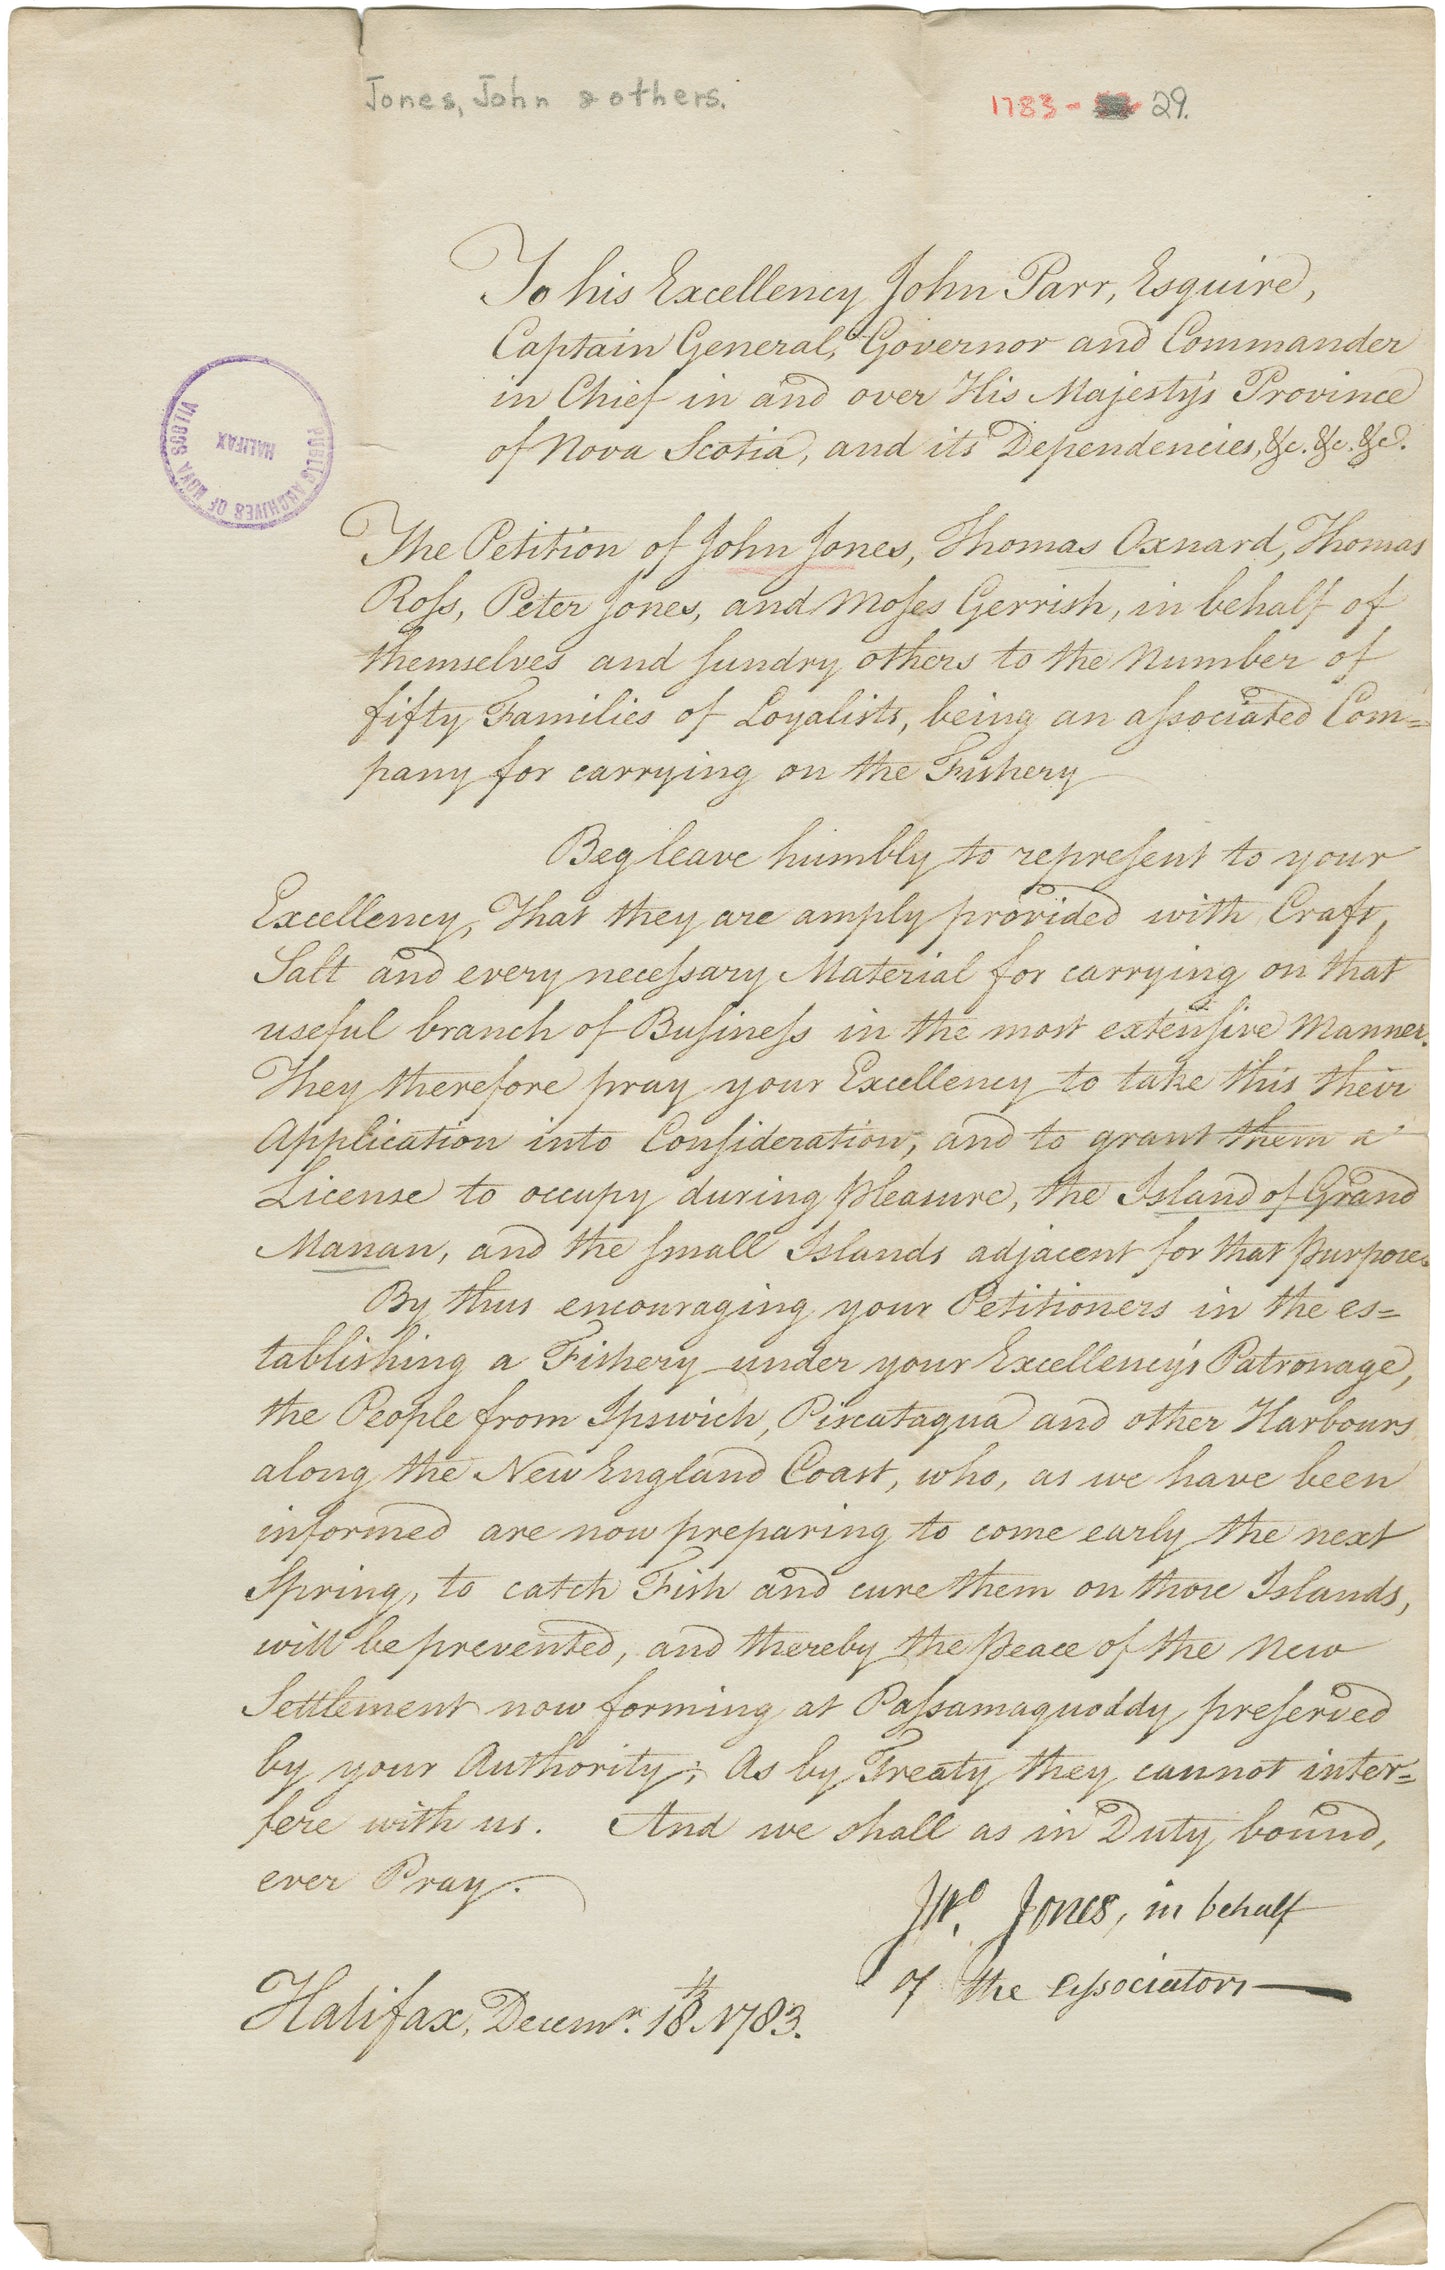 Jones, John & others.
1783 - 29.
To his Excellency John Parr, Esquire,
Captain General, Governor and Commander
in Chief in and over His Majesty's Province
of Nova Scotia, and its Dependencies, &c. &c. &c.
PUBLIC ARCHIVES OF NOVA SCOTIA
HALIFAX
The Petition of John Jones, Thomas Oxnard, Thomas
Roſs, Peter Jones, and Moſes Gerrish, in behalf of
themselves and ſundry others to the Number of
fifty Families of Loyalists, being an aſsociated Com=
pany for carrying on the Fishery
Beg leave humbly to repreſent to your
Excellency, That they are amply provided with Craft,
Salt and every neceſsary Material for carrying on that
useful branch of Buſineſs in the most extenſive Manner.
They therefore pray your Excellency to take this their
Application into Conſideration, and to grant them a
License to occupy during pleasure, the Island of Grand
Manan, and the ſmall Islands adjacent for that purpose.
By thus encouraging your Petitioners in the es=
tablishing a Fishery under your Excellency's Patronage,
the People from Ipswich, Piscataqua and other Harbours
along the New England Coast, who, as we have been
informed are now preparing to come early the next
Spring, to catch Fish and cure them on those Islands,
will be prevented, and thereby the peace of the New
Settlement now forming at Paſsamaquoddy preſerved
by your Authority; As by Treaty they cannot inter=
fere with us. And we shall as in Duty bound,
ever Pray.
Jno. Jones, in behalf
of the Aſsociators
Halifax, Decemr. 18th 1783.